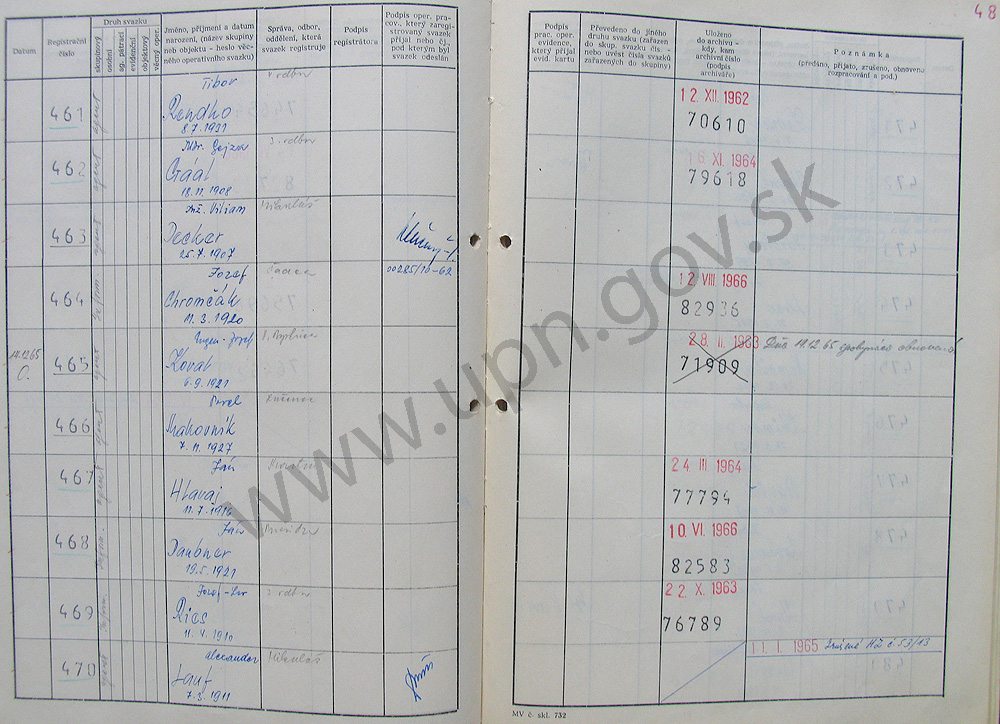 48
Datum
Registrační
číslo
Druh svazku
skupinový
osobní
ag. pátrací
evidenční
objektový
věcný oper.
Jméno, příjmení a datum
narození, (název skupiny
neb objektu - heslo věc-
ného operativního svazku)
Správa, odbor,
oddělení, která
svazek registruje
Podpis
registrátora
Podpis oper. pra-
cov., který zaregi-
strovaný svazek
přijal nebo čj.,
pod kterým byl
svazek odeslán
Podpis
prac. oper.
evidence,
který přijal
evid. kartu
Převedeno do jiného
druhu svazku (zařazen
do skup. svazku čís. -
nebo uvést čísla svazků
zařazených do skupiny)
Uloženo
do archivu -
kdy, kam
archivní číslo
(podpis
archiváře)
Poznámka
(předáno, přijato, zrušeno, obnoveno
rozpracování a pod.)
461
agent
Tibor
8.7.1931
odbor
12. XII. 1962
70610
462
agent
JUDr. Gejza
Gáál
18.11.1908
3. odbor
16 XI. 1964
79618
463
agent
Inž. Viliam
Decker
25.7.1907
Mikuláš
464
Jozef
Chromčák
11.3.1920
Čadca
00225/10-62
12 VIII 1966
82936
14.12.65
O.
465
agent
Eugen-Jozef
Kovať
6.9.1921
28. II. 1963
71909
Dňa 14.12.65 spolupráca obnovená
466
agent
Pavel
Mahovník
7.11.1927
467
agent
Ján
Hlavaj
11.7.1916
24 III 1964
77794
468
Ján
Daubner
19.5.1921
Prievidza
10. VI. 1966
82583
469
Rics
11.4.1910
odbor
22. X. 1963
76789
470
agent
Alexander
Lauf
7.3.1911
Mikuláš
11. I. 1965 Zrušené
MV č. skl. 732
www.upn.gov.sk